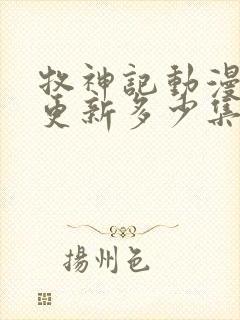 牧神記動漫
更新多少集
揚州色